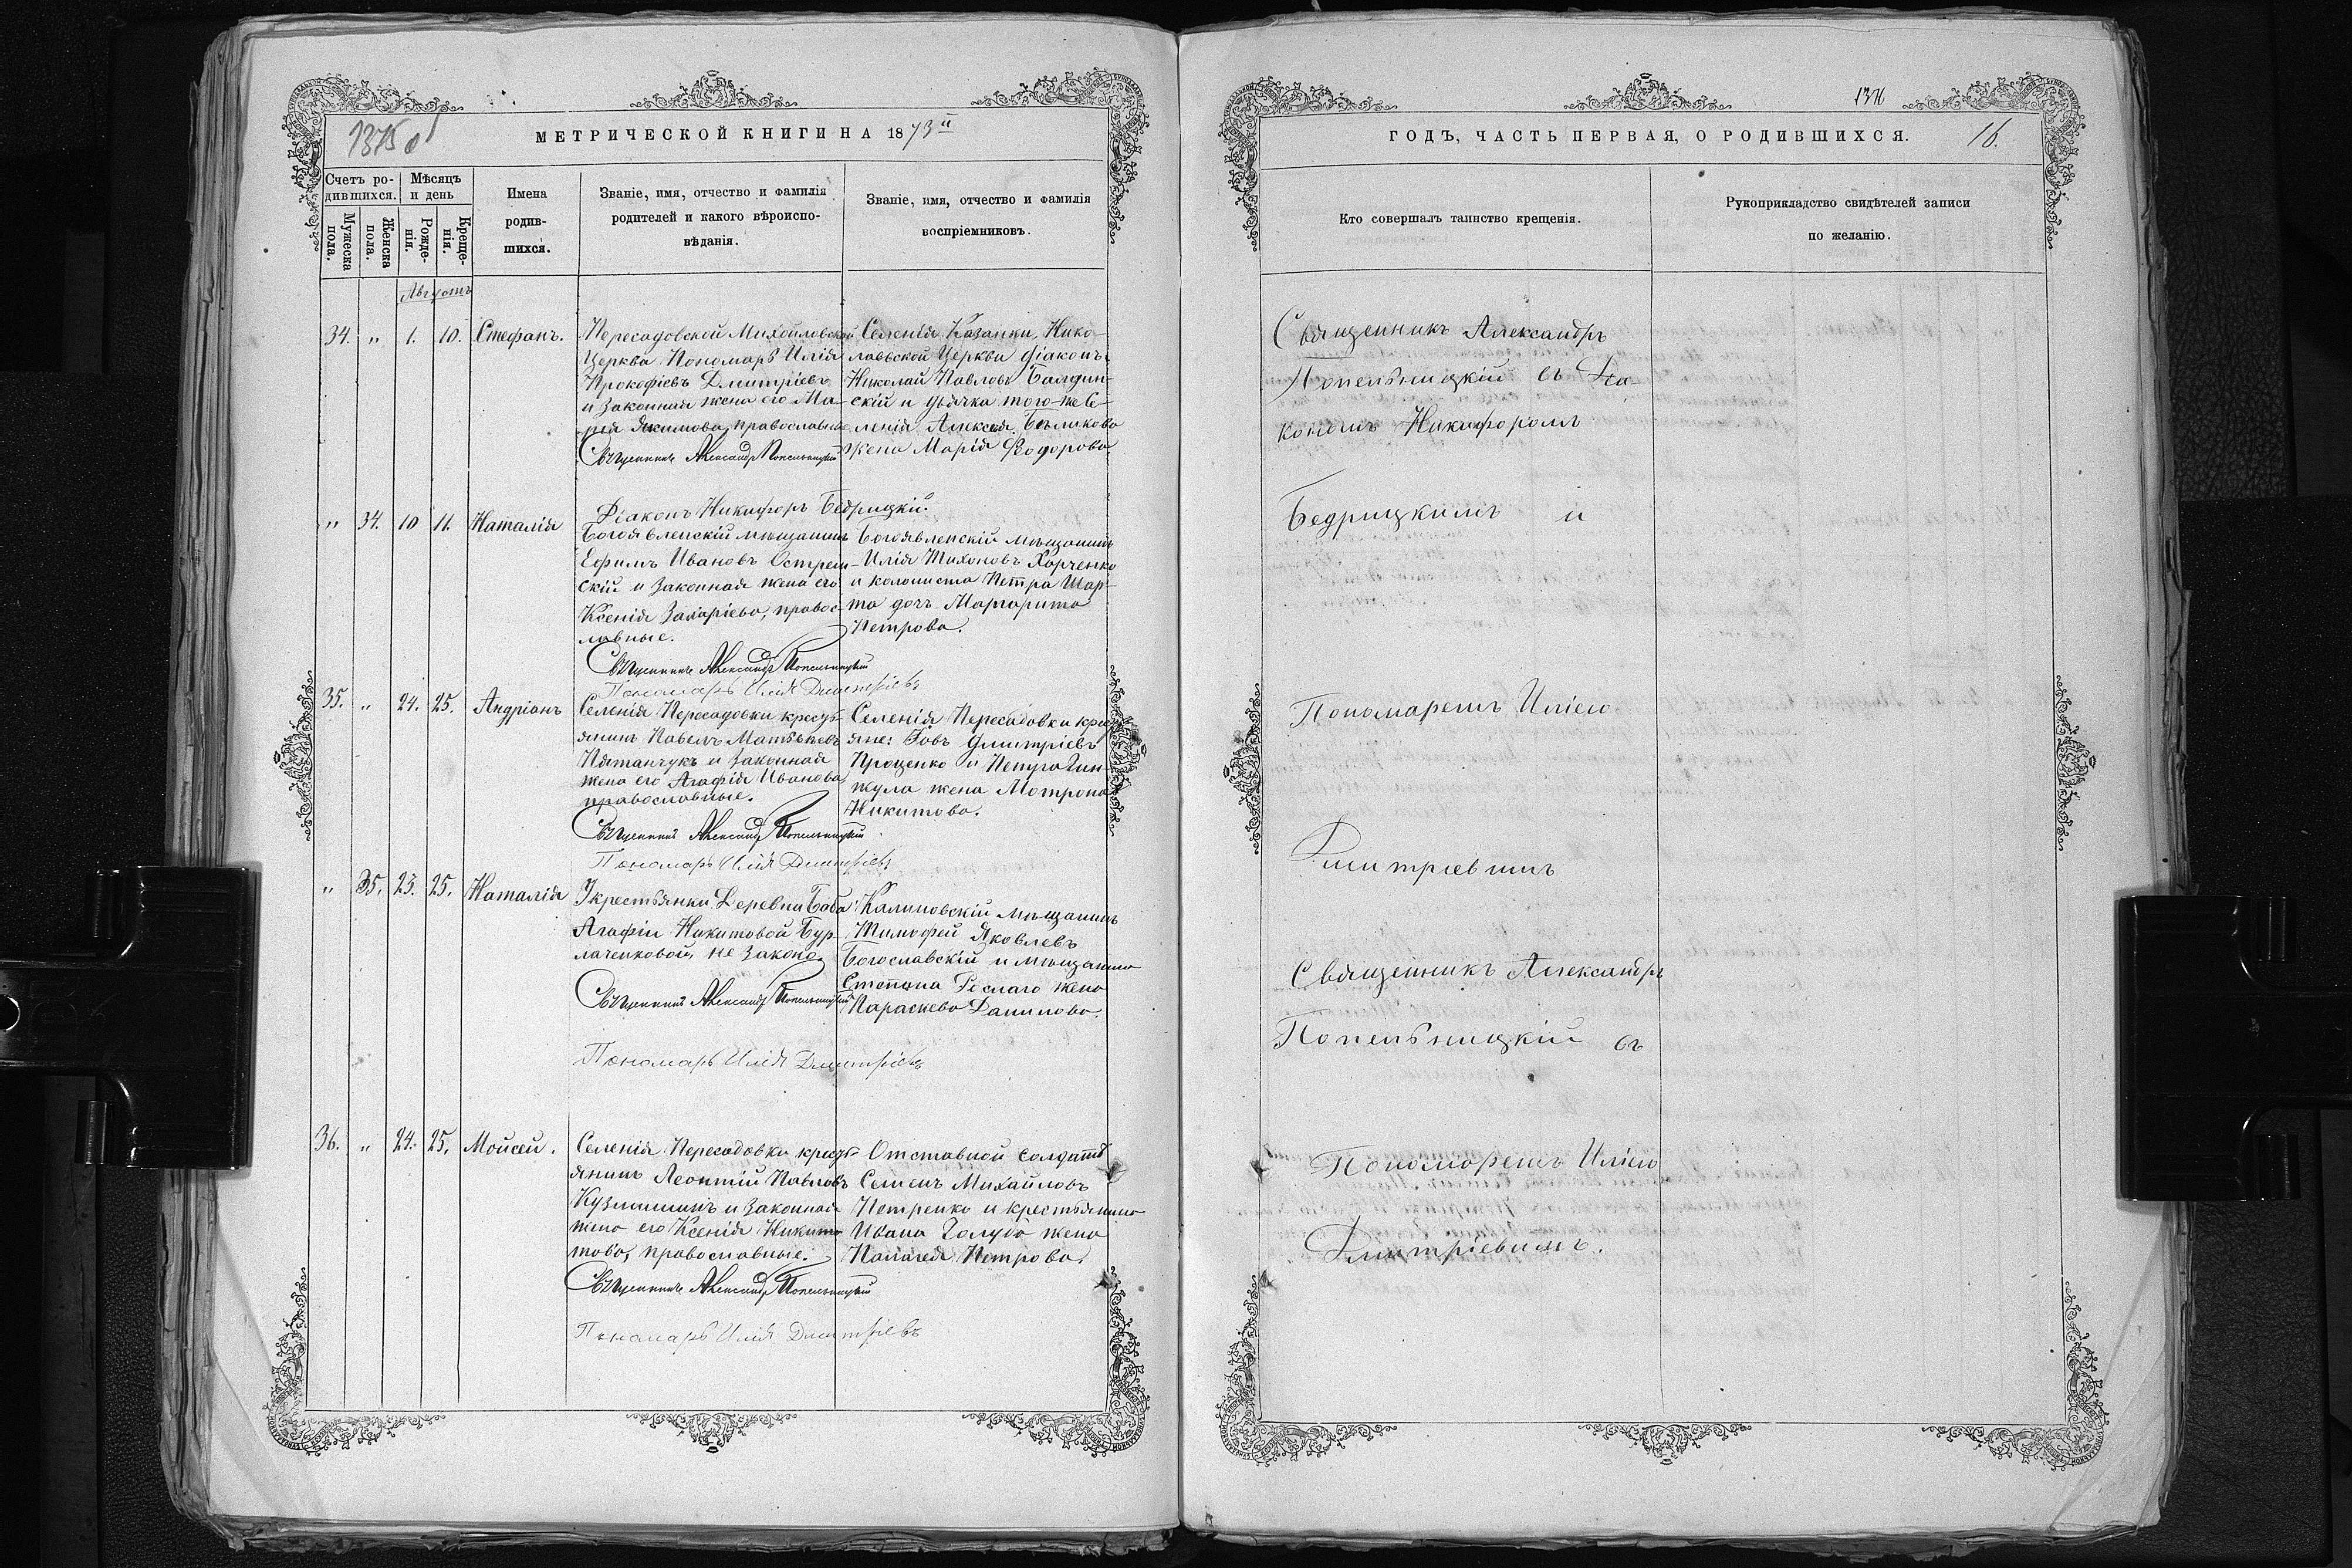 1375 об
МЕТРИЧЕСКОЙ КНИГИ НА 1873й
Счетъ родившихся.
Мѣсяцъ и день
Имена родившихся.
Званіе, имя, отчество и фамилія родителей и какого вѣроисповѣданія.
Званіе, имя, отчество и фамилія воспріемниковъ.
Мужеска пола.
Женска пола.
Рожденія.
Крещенія.
Августъ
34. „ 1. 10. Стефанъ.
Пересадовской Михайловской
Церкви Пономарь Илія
Прокофіевъ Дмитріевъ
и законная жена его Ма-
рія Якимова, православные
Священникъ Александръ Попельницкій
Діаконъ Никифоръ Бедрицкій.
Селенія Казанки, Нико-
лаевской Церкви Діаконъ
Николай Павловъ
скій и дьячка того-же Се-
ленія Алексея Бѣликова
жена Марія Ѳодорова.
„ 34. 10 11. Наталія
Богоявленскій мѣщанинъ
Ефимъ Ивановъ Острем-
скій и законная жена его
Ксенія Захаріева, правос-
лавные.
Священникъ Александръ Попельницкій
Пономарь Илія Дмитріевъ
Богоявленскій мѣщанинъ
Илія Тихоновъ Харченко
и колониста Петра Шар-
та дочь Маргарита
Петрова.
35. „ 24. 25. Андріанъ
Селенія Пересадовки кресть-
янинъ Павелъ Матвѣевъ
Пятанчукъ и законная
жена его Агафія Иванова,
православные.
Священникъ Александръ Попельницкій
Пономарь Илія Дмитріевъ
Селенія Пересадовки кресть-
яне: Іовъ Дмитріевъ
Проценко и Петра
жула жена Мотрона
Никитова.
„ 35. 23. 25. Наталія
У крестьянки Деревни
Агафіи Никитовой Бур-
лаченковой, не законо.
Священникъ Александръ Попельницкій
Пономарь Илія Дмитріевъ
Калиновскій мѣщанинъ
Тимофей Яковлевъ
Богославскій и мѣщанина
Степана Рослаго жена
Параскева Данилова.
36. „ 24. 25. Мойсей.
Селенія Пересадовки кресть-
янинъ Леонтій Павловъ
Кузьминъ и законная
жена его Ксенія Никито-
това, православные.
Священникъ Александръ Попельницкій
Пономарь Илія Дмитріевъ
Отставной солдатъ
Семенъ Михайловъ
Петренко и крестьянина
Ивана Голуба жена
Палагея Петрова.
1376
ГОДЪ, ЧАСТЬ ПЕРВАЯ, О РОДИВШИХСЯ.
16.
Кто совершалъ таинство крещенія.
Рукоприкладство свидѣтелей записи по желанію.
Священникъ Александръ
Попельницкій съ Діа-
кономъ Никифоромъ
Бедрицкимъ и
Пономаремъ Иліею
Дмитріевымъ
Священникъ Александръ
Попельницкій съ
Пономаремъ Иліею
Дмитріевымъ.